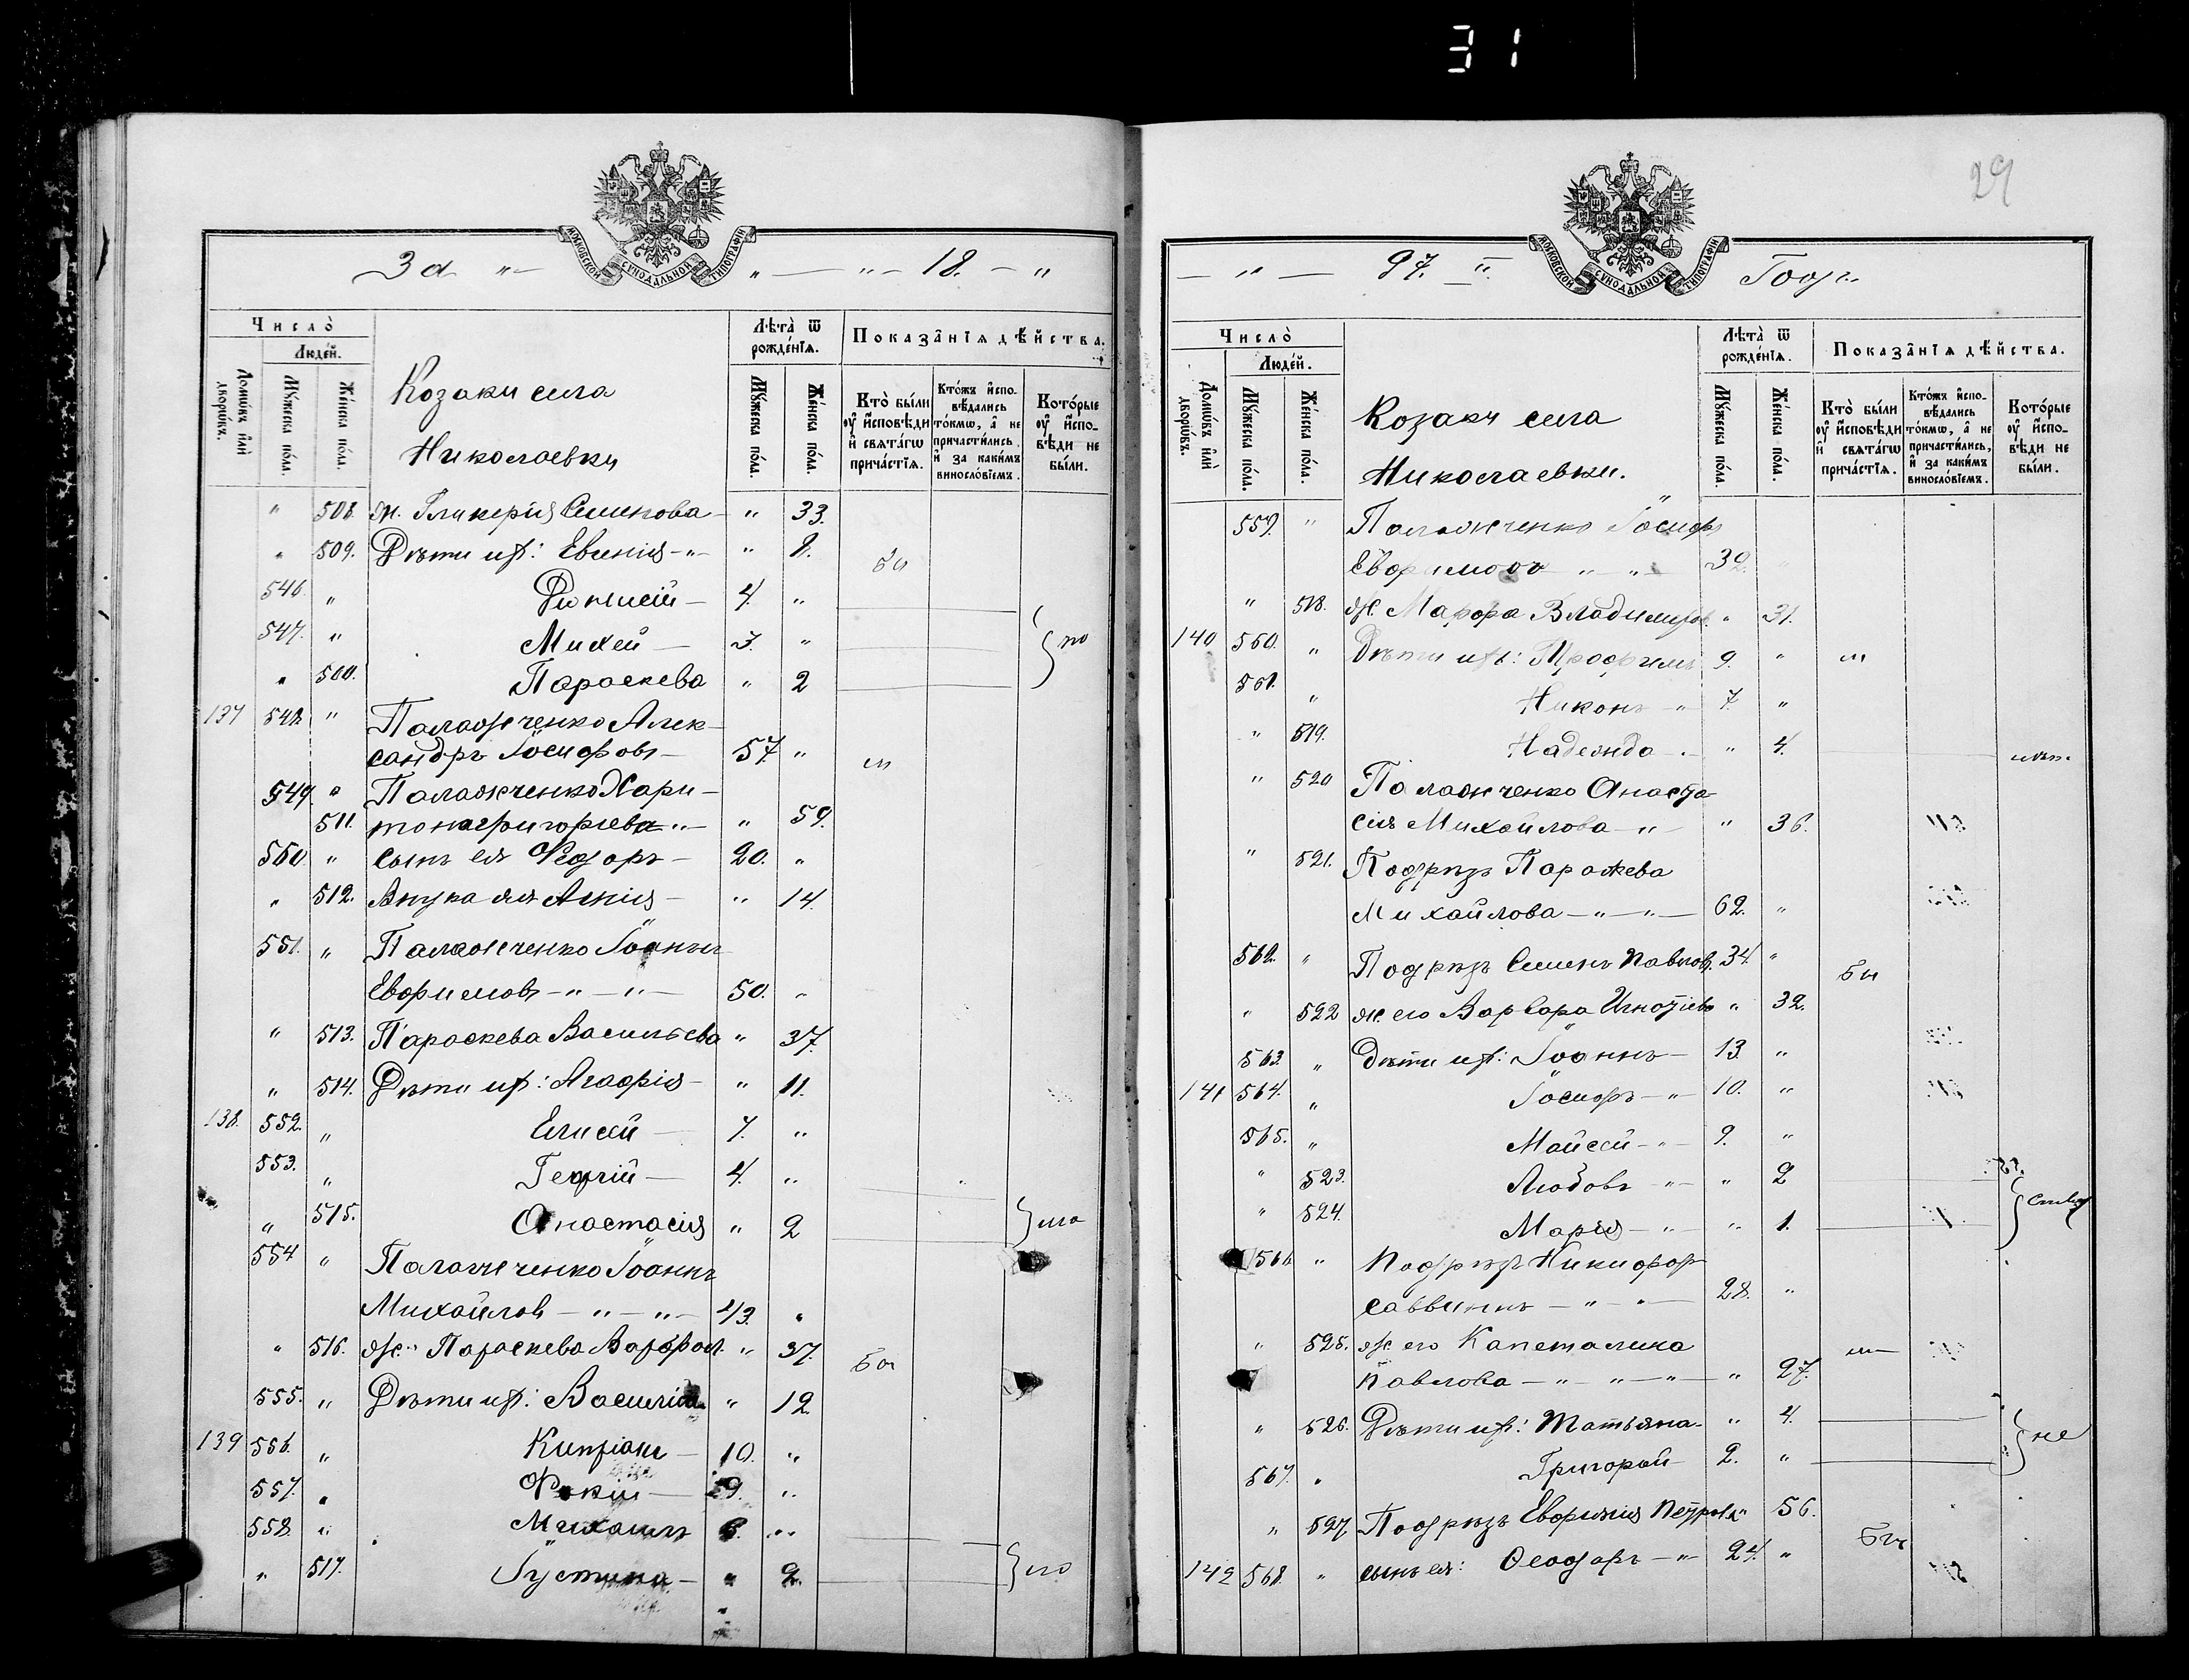 31
29
За " " " 18. "
МОСКОВСКОЙ СУНОДАЛЬНОЙ ТИПОГРАФІИ
Число̀
Людéй.
Домѡ́въ и҆лѝ дворѡ́въ.
Мꙋ́жеска по́ла.
Же́нска по́ла.
Козаки села
Николаевки
Лѣ́та ѿ рожде́нїѧ.
Мꙋ́жеска по́ла.
Же́нска по́ла.
Показа̑нїѧ дѣ́йства.
Ктѐ бы́ли ᲂу҆ и҆сповѣ́ди и҆ свѧта́гѡ прича́стїѧ.
Кто́жъ и҆сповѣ́дались то́кмѡ, а҆ не причасти́лись, и҆ за каки́мъ винослóвїемъ.
Кото́рые ᲂу҆ и҆сповѣ́ди не бы́ли.
" 508. ж. Гликерія Семенова " 33.
" 509. Дѣти ихъ: Евгенія " 8. бы
546. " Дионисій 4. "
547. " Михей 3. " } по
" 510. Параскева " 2
137 548. " Палажченко Алек-
сандръ Іосифовъ 57. "
549. " Палажченко Хари-
511. тона Григорьева " 59.
550. " сынъ ея Федоръ 20. "
" 512. Внука ея Агнія " 14.
551. " Палажченко Іоаннъ
Евфимовъ " " 50. "
" 513. Параскева Васильева " 37.
" 514. Дѣти ихъ: Агафія " 11.
138. 552. " Елисей 7. "
553. " Георгій 4. "
" 515. Анастасія " 2
554 " Палажченко Іоаннъ
Михайловъ " " 43. "
" 516. ж. Параскева Варфол. " 37. бы
555. " Дѣти ихъ: Василій " 12.
139 556. " Кипріанъ 10. "
557. " Фокій 9. "
558. " Михаилъ 6. "
" 517. Іустина " 2.
" 97. " Годъ
МОСКОВСКОЙ СУНОДАЛЬНОЙ ТИПОГРАФІИ
Число̀
Людéй.
Домѡ́въ и҆лѝ дворѡ́въ.
Мꙋ́жеска по́ла.
Же́нска по́ла.
Козаки села
Николаевки.
Лѣ́та ѿ рожде́нїѧ.
Мꙋ́жеска по́ла.
Же́нска по́ла.
Показа̑нїѧ дѣ́йства.
Ктѐ бы́ли ᲂу҆ и҆сповѣ́ди и҆ свѧта́гѡ прича́стїѧ.
Кто́жъ и҆сповѣ́дались то́кмѡ, а҆ не причасти́лись, и҆ за каки́мъ винослóвїемъ.
Кото́рые ᲂу҆ и҆сповѣ́ди не бы́ли.
559. " Палажченко Іосифъ
Евфимовъ " " 39. "
" 518. ж. Марфа Владимиров. " 31.
140 560. " Дѣти ихъ: Трофимъ 9. "
561. " Никонъ " 7. "
" 519. Надежда " 4.
" 520 Палажченко Анаста-
сія Михайлова " " 36.
" 521. Подрѣзъ Параскева
Михайлова " " 62. "
562. " Подрѣзъ Семенъ Павлов. 34. " бы
" 522 ж. его Варвара Игнатіева " 32.
563. " Дѣти ихъ: Іоаннъ 13. "
141 564. " Іосифъ " 10. "
565. " Мойсей " 9. "
" 523. Любовь " " 2
" 524. Марія " " 1.
566 " Подрѣзъ Никифоръ
Саввинъ " " 28. "
" 525. ж. его Капетолина
Павлова " " " " 27.
" 526. Дѣти ихъ: Татьяна " 4.
567. " Григорій 2. " } не
" 527 Подрѣзъ Евфимія Петрова " 56. бы
142 568. " сынъ ея: Ѳеодоръ " 24. "